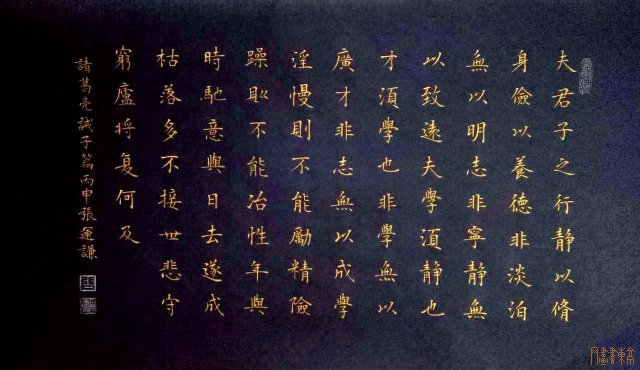 夫君子之行靜以脩
身儉以養德非淡泊
無以明志非寧靜無
以致遠夫學湏靜也
才湏學也非學無以
廣才非志無以成學
淫慢則不能勵精險
躁則不能冶性年與
時馳意與日去遂成
枯落多不接世悲守
窮廬將复何及
諸葛亮誡子篇丙申張運謙